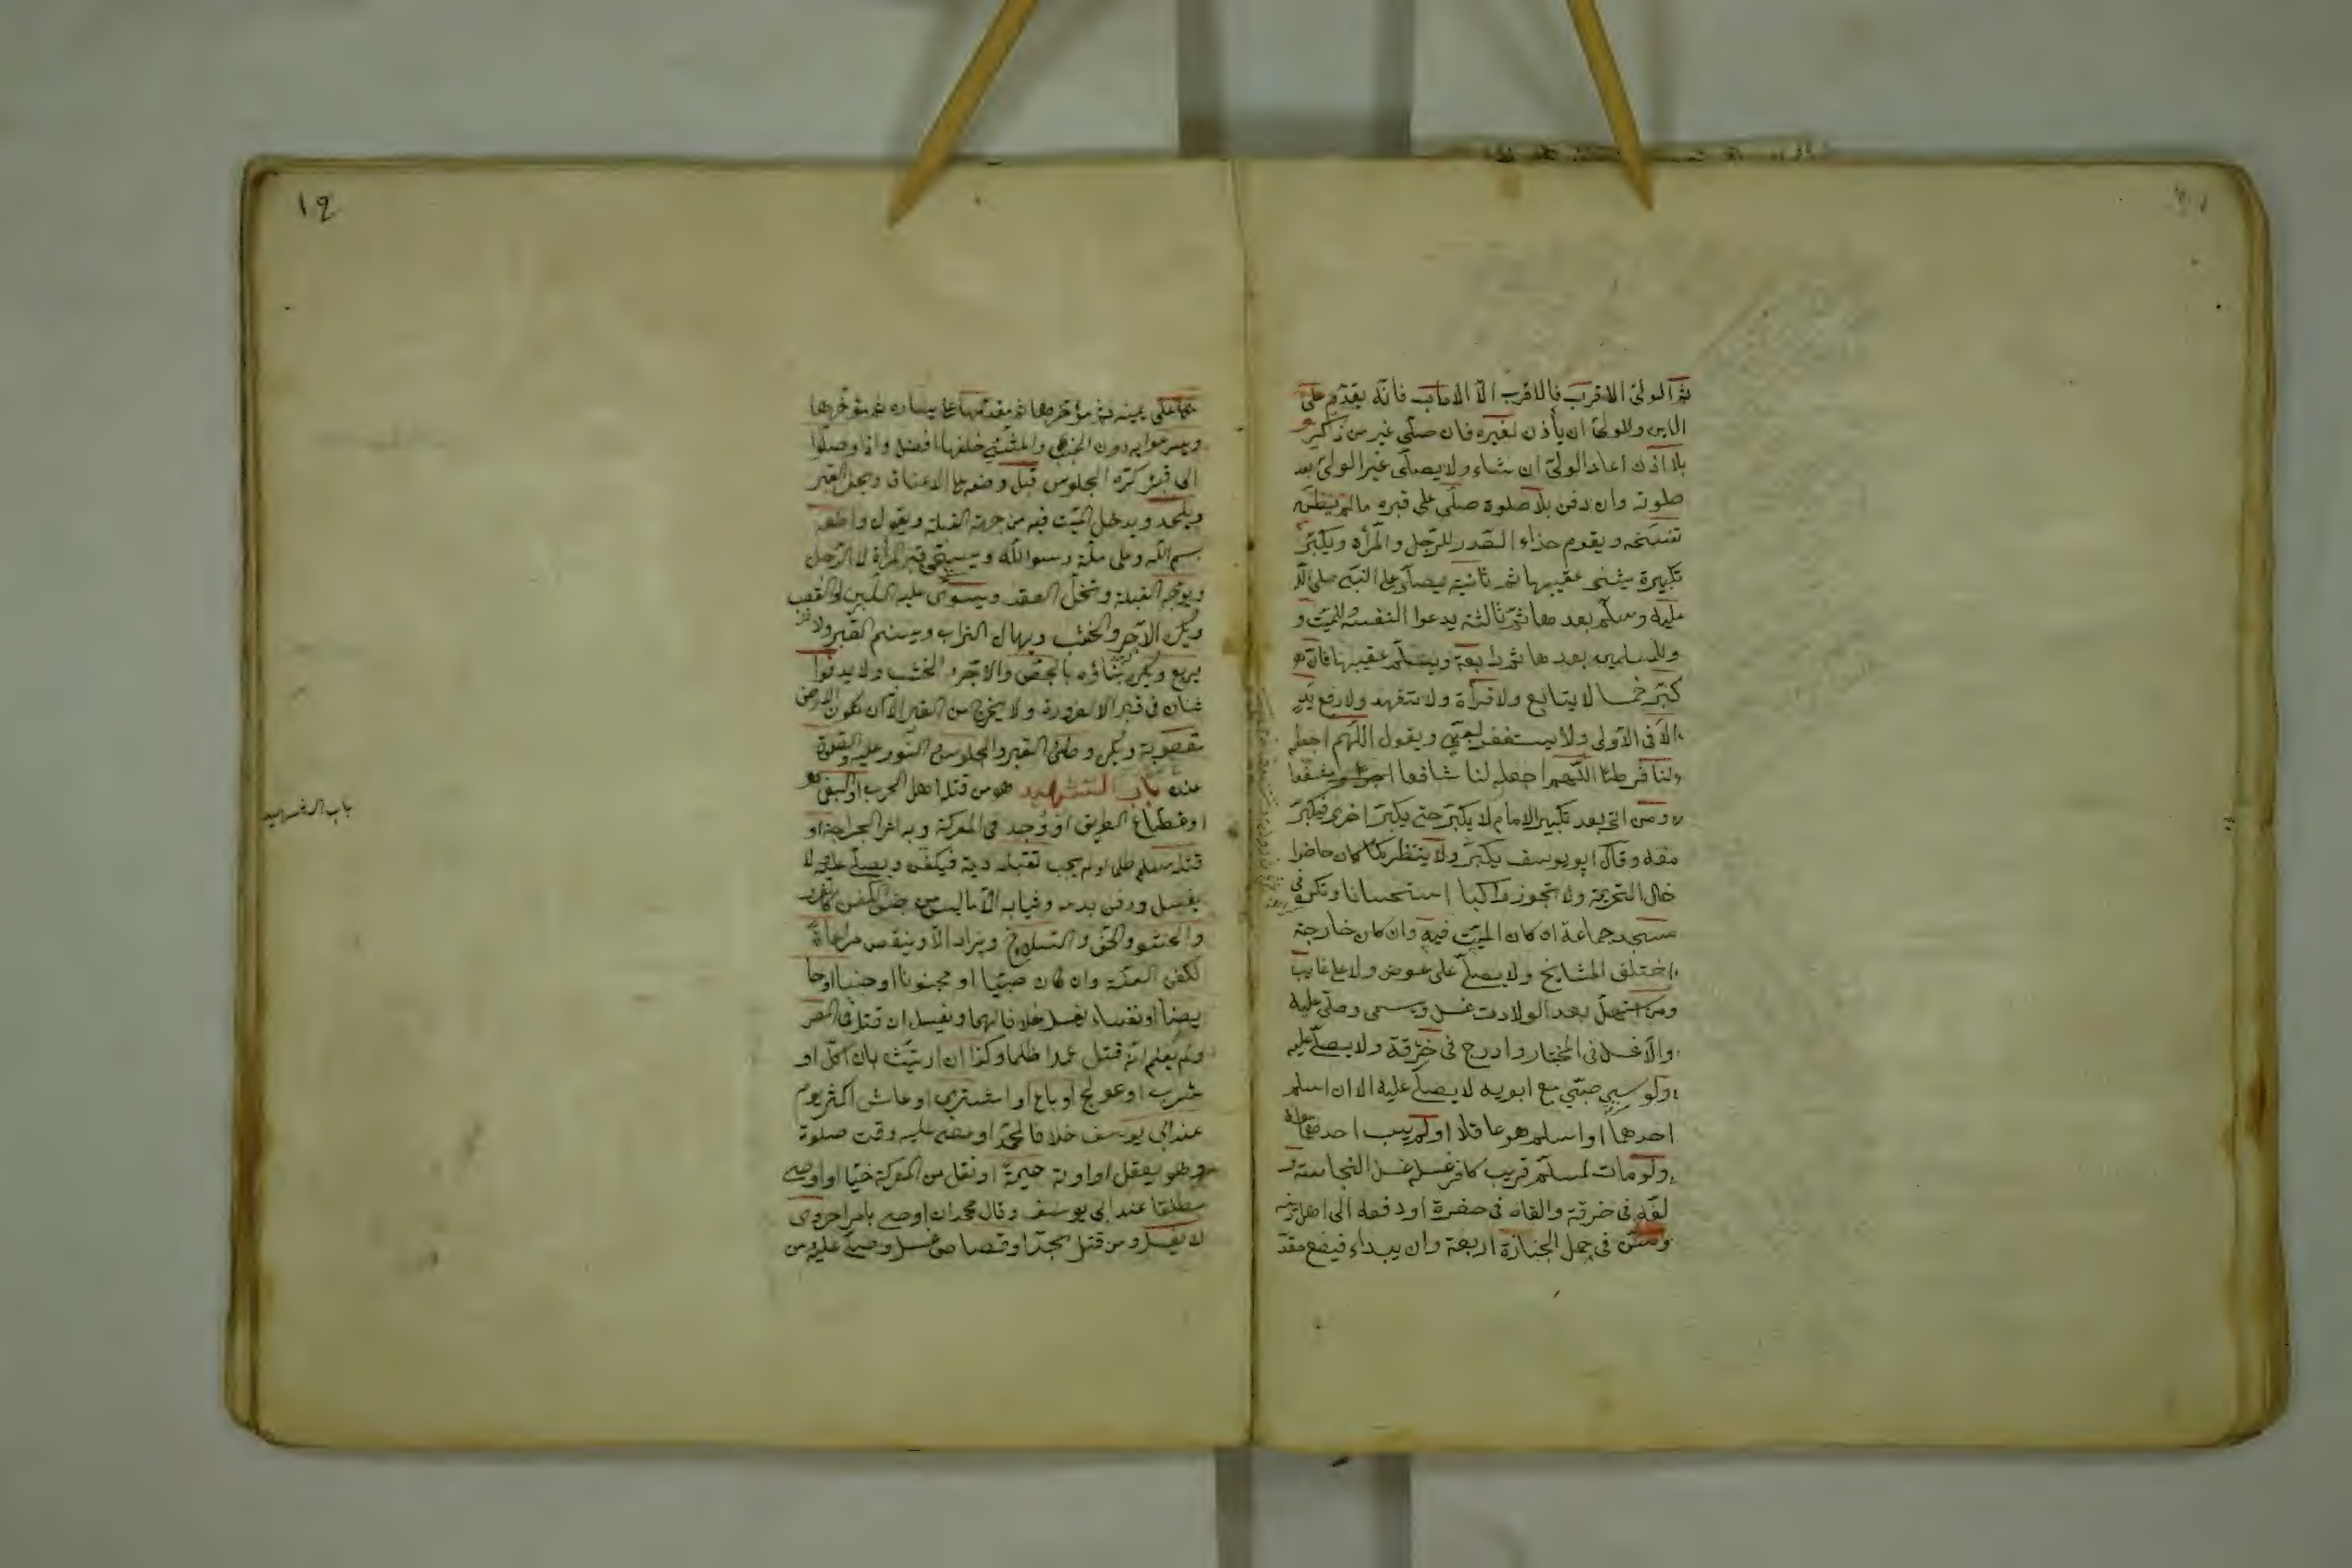 ثم الولى الاقرب فالاقرب الا الاب فانه يقدم على
الابن وللولى ان يأذن لغيره فان صلى غير من ذكر
بلا اذن اعاد الولى ان شاء ولا يصلى غير الولى بعد
صلوته وان دفن بلا صلوة صلى على قبره ما لم يظن
تفسخه ويقوم حذاء الصدر للرجل والمرأة ويكبر
تكبيرة يثنى عقيبها ثم ثانية يصلى على النبى صلى الله
عليه وسلم بعدها ثم ثالثة يدعوا لنفسه وللميت و
وللمسلمين بعدها ثم رابعة ويسلم عقيبها فان
كبر خمسا لا يتابع ولا قرأة ولا تشهد ولا رفع يد
الا فى الاولى ولا يستغفر لصبى ويقول اللهم اجعله
لنا فرطا اللهم اجعله لنا شافعا مشفعا
ومن اتى بعد تكبير الامام لا يكبر حتى يكبر اخرى فيكبر
معه وقال ابو يوسف يكبر ولا ينتظر كمن كان حاضرا
حال التحريمة ولا تجوز راكبا استحسانا وتكره فى
مسجد جماعة ان كان الميت فيه وان كان خارجه
اختلق المشايخ ولا يصلى على عضو ولا على غايب
ومن استهل بعد الولادت غسل وسمى وصلى عليه
والا غسل فى المختار وادرج فى خرقة ولا يصلى عليه
ولو سبى صبى مع ابويه لا يصلى عليه الا ان اسلم
احدهما او اسلم هو عاقلا او لم يسب احدهما معه
ولو مات لمسلم قريب كافر غسله غسل النجاسة و
لفه فى خرقة والقاه فى حفرة او دفعه الى اهل دينه
وسن فى حمل الجنازة اربعة وان يبداء فيضع مقد
مها على يمينه ثم مؤخرها ثم مقدمها على يساره ثم مؤخرها
ويسرعوا به دون الخبب والمشى خلفها افضل واذا وصلوا
الى قبره كره الجلوس قبل وضعه عن الاعناق ويحفر القبر
ويلحد ويدخل الميت فيه من جهة القبلة ويقول واضعه
بسم الله وعلى ملة رسول الله ويسجى قبر المرأة لا الرجل
ويوجه القبلة وتحل العقد ويسوى عليه اللبن والقصب
ويكره الآجر والخشب ويهال التراب ويسنم القبر ولا
يربع ويكره بناؤه بالجص والاجر والخشب ولا يدفنوا
اثنان فى قبر الا لضرورة ولا يخرج من القبر الا ان تكون الارض
مغصوبة ويكره وطئ القبر والجلوس والنوم عليه والصلوة
عنده باب الشهيد هو من قتله اهل الحرب او البغى
او قطاع الطريق او وجد فى المعركة وبه اثر الجراحة او
قتله مسلم ظلما ولم يجب بقتله دية فيكفن ويصلى عليه ولا
يغسل ويدفن بدمه وثيابه الا ما ليس من جنس الكفن كالفرو
والحشو والخف والسلاح ويزاد او ينقص مراعاة
لكفن السنة وان كان صبيا او مجنونا او جنبا او حا
يضا او نفساء يغسل خلافا لهما ويغسل ان قتل فى المصر
ولم يعلم انه قتل عمدا ظلما وكذا ان ارتث بان اكل او
شرب او عولج او باع او اشترى او عاش اكثر يوم
عند ابى يوسف خلافا لمحمد او مضى عليه وقت صلوة
وهو يعقل او اوته خيمة او نقل من المعركة حيا او اوصى
مطلقا عند ابى يوسف وقال محمد ان اوصى بامر اخروى
لا يغسل ومن قتل بحد او قصاص غسل وصلى عليه ومن
باب الشهيد